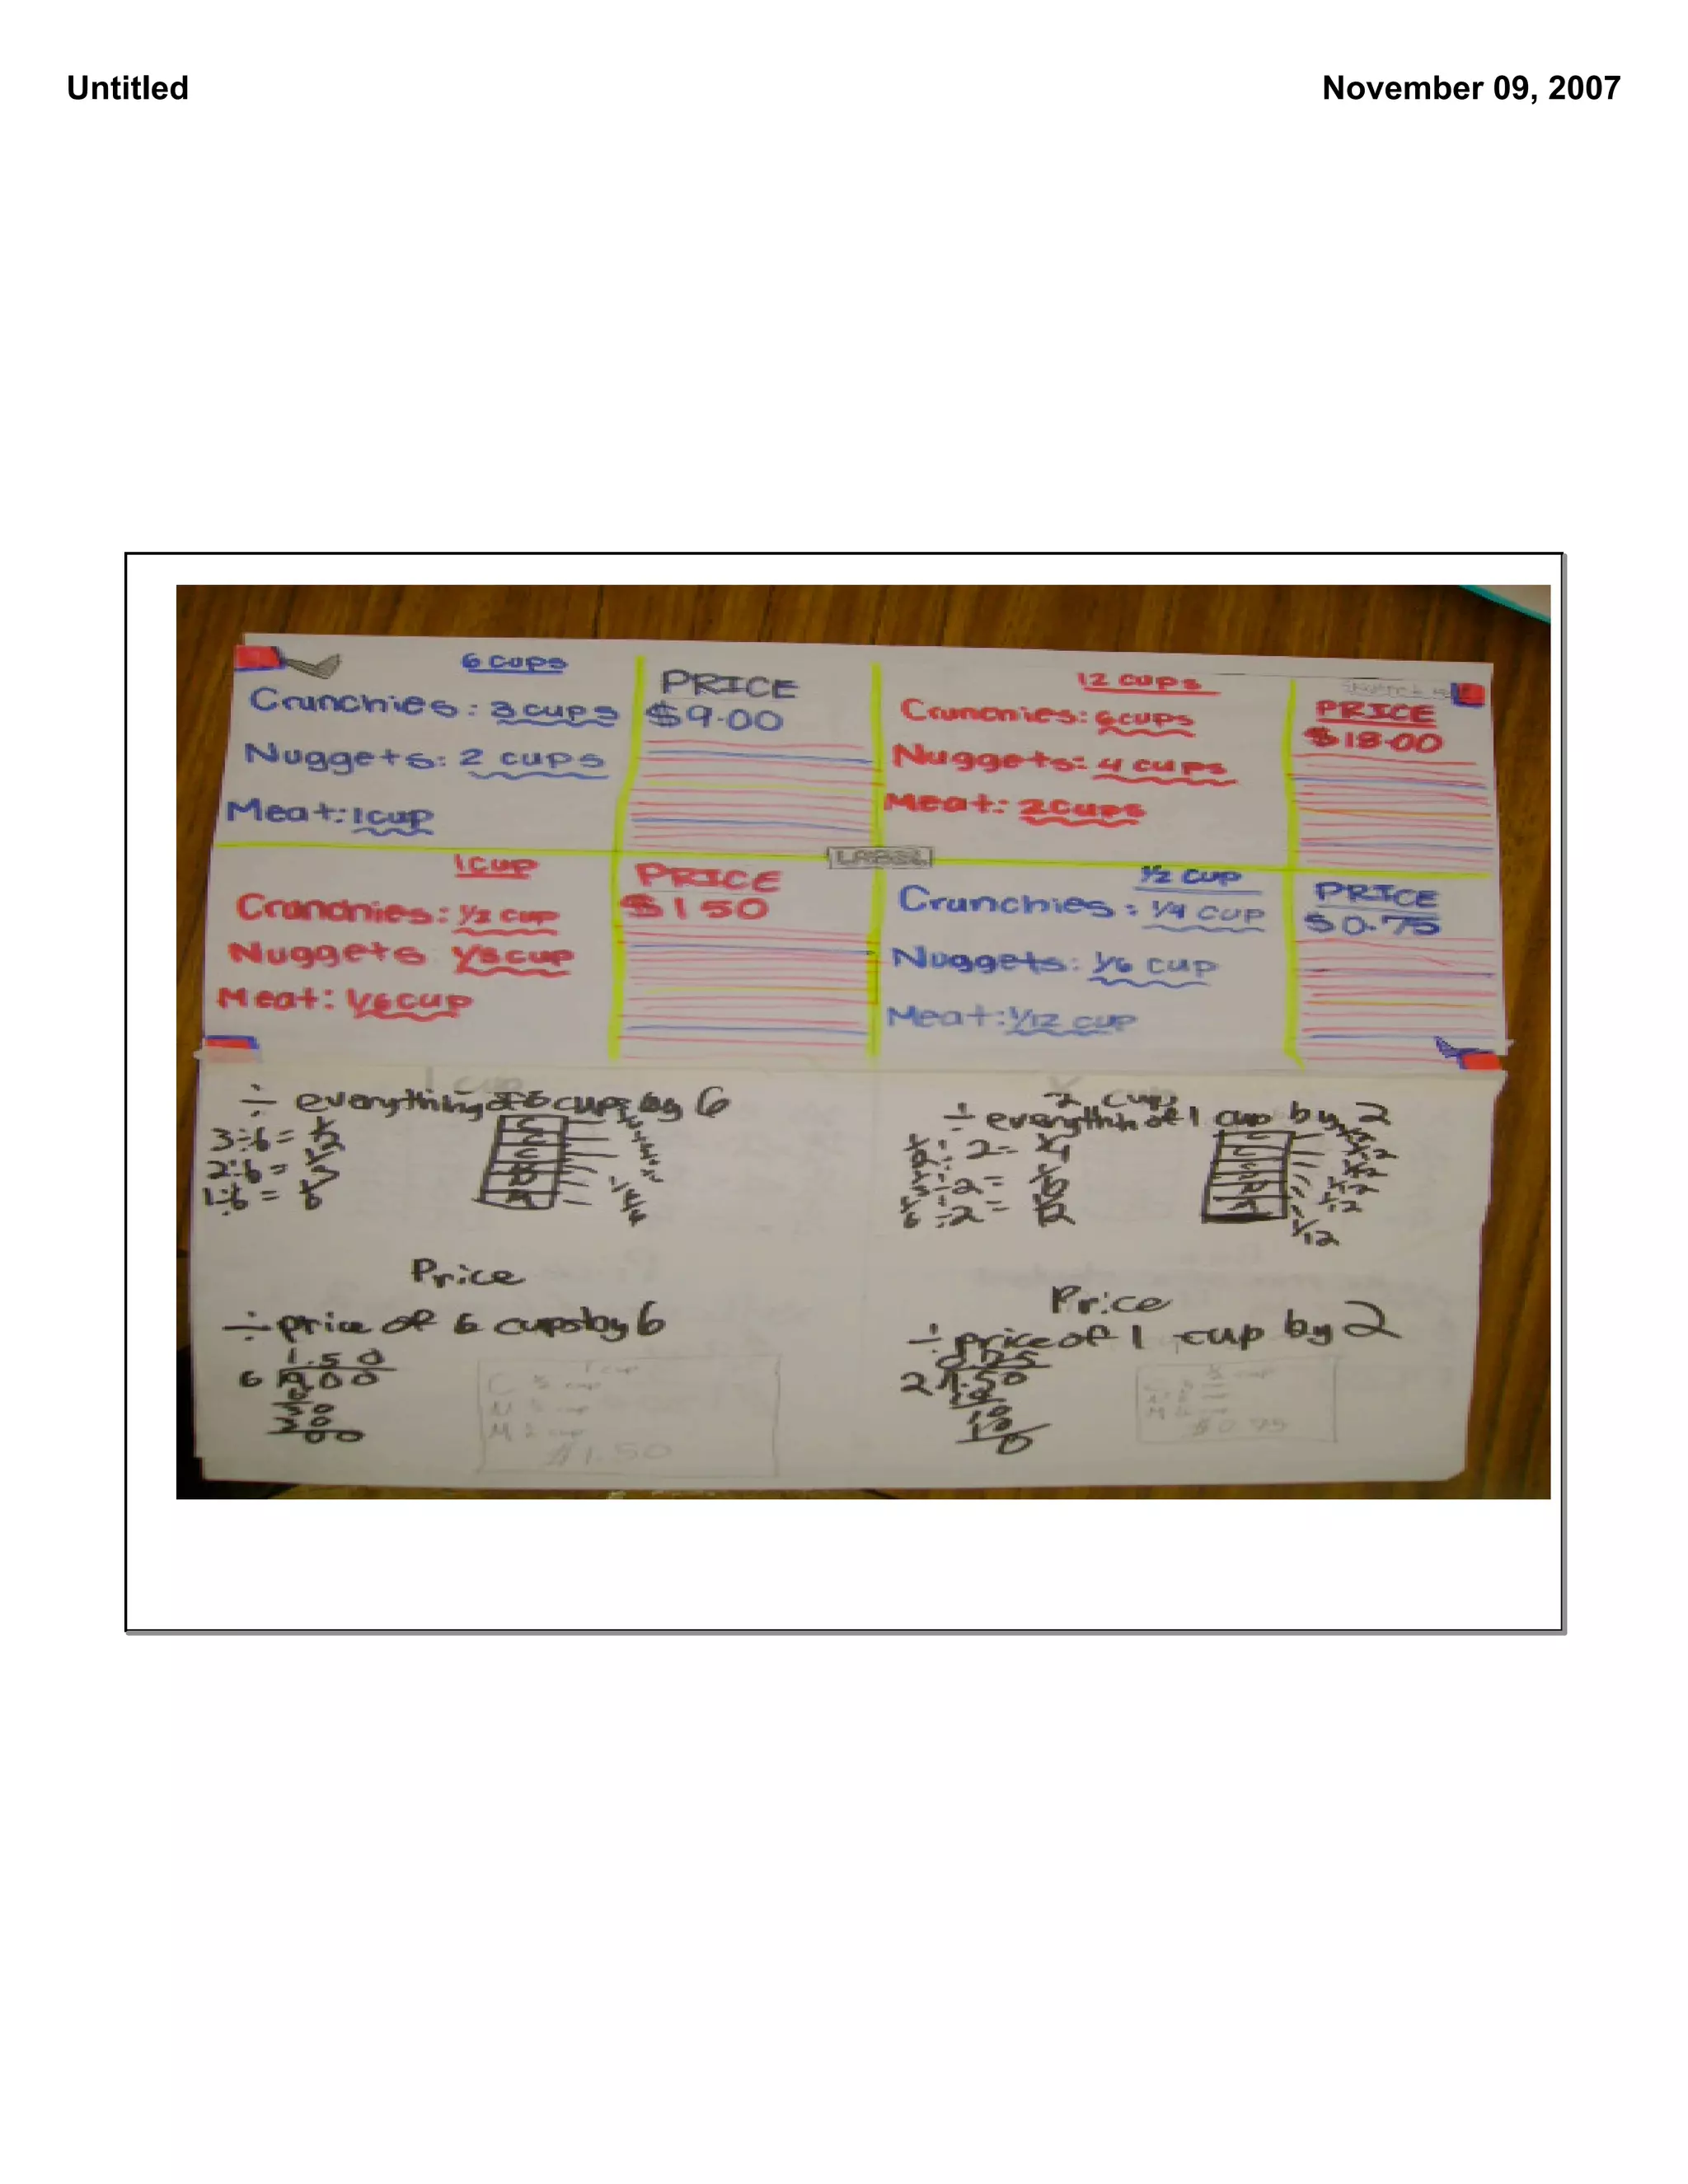 Untitled
November 09, 2007
6 cups
Crunchies: 3 cups
Nuggets: 2 cups
Meat: 1 cup
PRICE
$9.00
12 cups
Crunchies: 6 cups
Nuggets: 4 cups
Meat: 2 cups
PRICE
$18.00
LABEL
1 cup
Crunchies: 1/2 cup
Nuggets 1/3 cup
Meat: 1/6 cup
PRICE
$1 50
1/2 cup
Crunchies: 1/4 cup
Nuggets: 1/6 cup
Meat: 1/12 cup
PRICE
$0.75
1 cup
÷ everything of 6 cups by 6
3÷6=
2÷6=
1÷6=
Price
÷ price of 6 cups by 6
1.50
6
1 cup
C cup
N cup
M cup
$1.50
cup
÷ everythin of 1 cup by 2
÷ 2=
÷ 2=
÷ 2=
1/12
Price
÷ price of 1 cup by 2
2 1.50
cup
$0.75